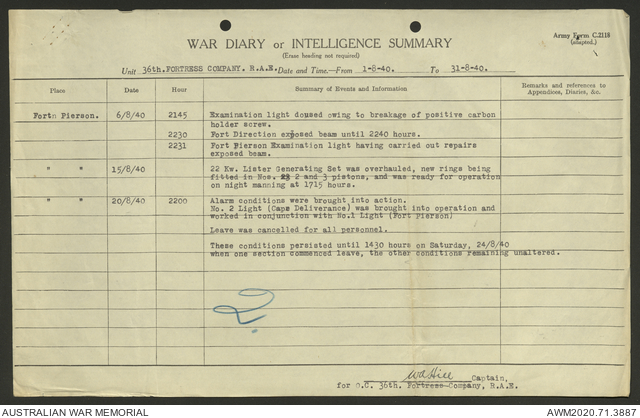 Army Form C.2118
(adapted.)
WAR DIARY or INTELLIGENCE SUMMARY
(Erase heading not required)
Unit 36th.FORTRESS COMPANY. R.A.E. Date and Time.—From 1-8-40. To 31-8-40.
Place Date Hour Summary of Events and Information Remarks and references to Appendices, Diaries, &c.
Fortn Pierson. 6/8/40 2145 Examination light doused owing to breakage of positive carbon
holder screw.
2230 Fort Direction exposed beam until 2240 hours.
2231 Fort Pierson Examination light having carried out repairs
exposed beam.
" " 15/8/40 22 Kw. Lister Generating Set was overhauled, new rings being
fitted in Nos. 2 and 3 pistons, and was ready for operation
on night manning at 1715 hours.
" " 20/8/40 2200 Alarm conditions were brought into action.
No. 2 Light (Cape Deliverance) was brought into operation and
worked in conjunction with No.1 Light (Fort Pierson)
Leave was cancelled for all personnel.
These conditions persisted until 1430 hours on Saturday, 24/8/40
when one section commenced leave, the other conditions remaining unaltered.
2.
WA Hill Captain,
for O.C. 36th. Fortress Company, R.A.E.
AUSTRALIAN WAR MEMORIAL
AWM2020.71.3887